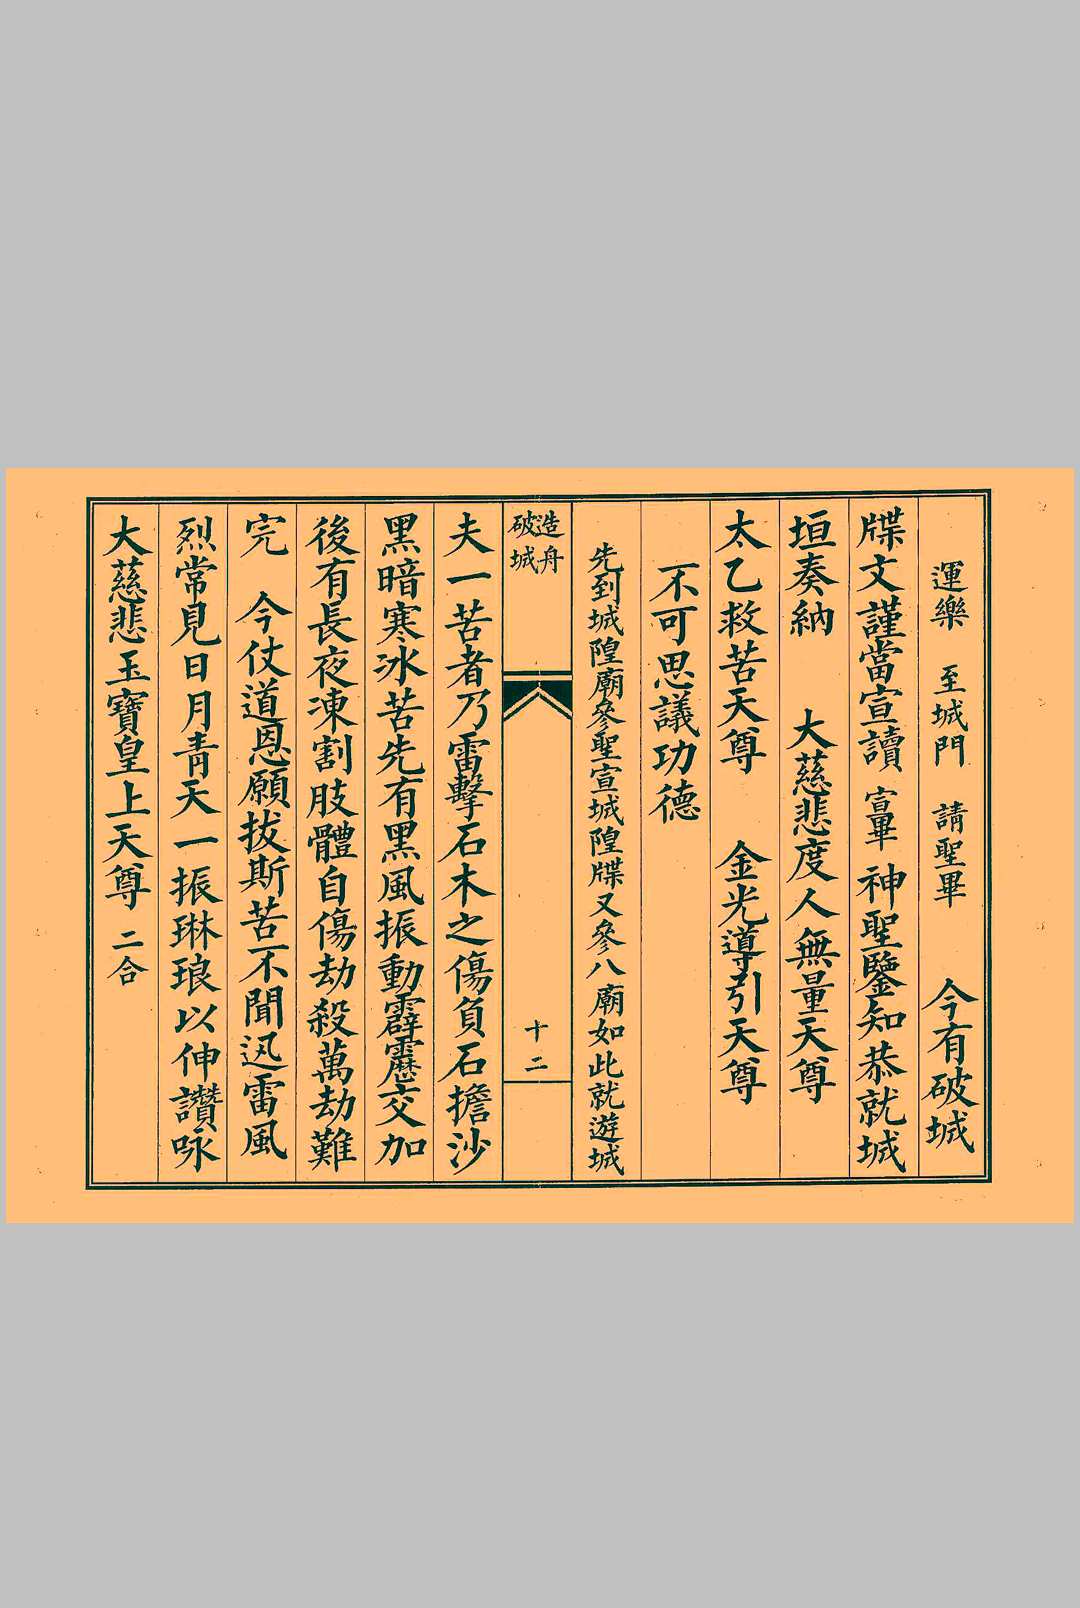 運樂　至城門　請聖畢　今有破城
牒文謹當宣讀　宣畢　神聖鑒知恭就城
垣奏納　大慈悲度人無量天尊
太乙救苦天尊　金光導引天尊
不可思議功德
先到城隍廟參聖宣城隍牒又參八廟如此就遊城
造舟
破城
十二
夫一苦者乃雷擊石木之傷負石擔沙
黑暗寒冰苦先有黑風振動霹靂交加
後有長夜凍割肢體自傷劫殺萬劫難
完　今仗道恩願拔斯苦不聞迅雷風
烈常見日月青天一振琳琅以伸讚咏
大慈悲玉寶皇上天尊　二合